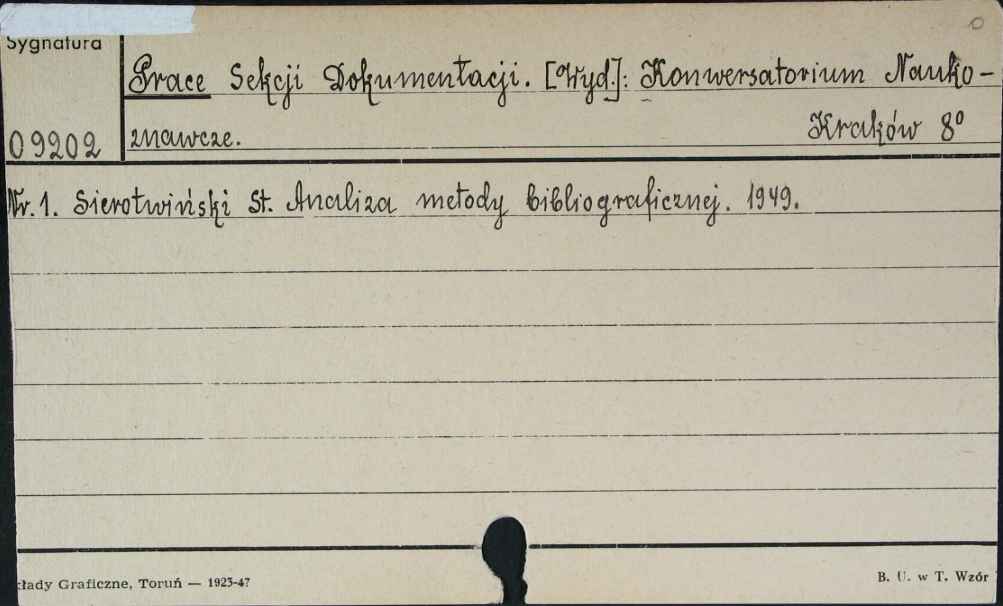 0
Sygnatura
Prace Sekcji Dokumentacji. [Wyd.]: Konwersatorium Nauko-
09202 znawcze. Kraków 8°
Nr. 1. Sierotwiński St. Analiza metody bibliograficznej. 1949.
kłady Graficzne, Toruń — 1923-47
B. U. w T. Wzór